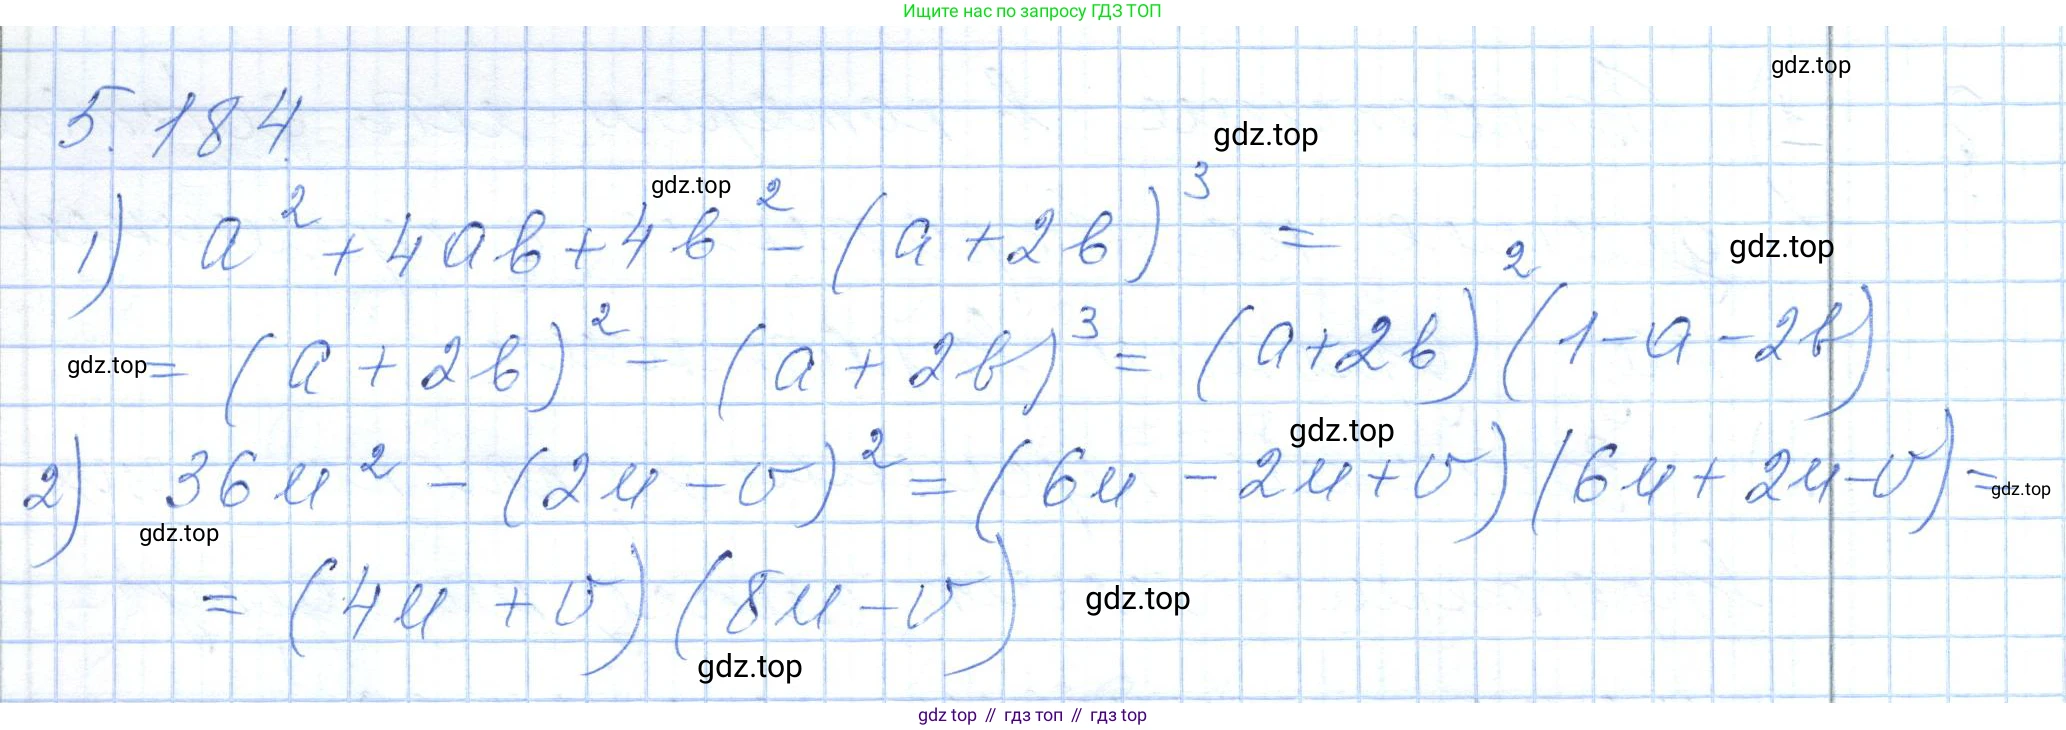 Ищите нас по запросу ГДЗ ТОП
gdz.top
5.184.
gdz.top
gdz.top
1) a² + 4aв + 4в² - (a + 2в)³ =
gdz.top
gdz.top
= (a + 2в)² - (a + 2в)³ = (a + 2в)² (1 - a - 2в)
gdz.top
2) 36u² - (2u - v)² = (6u - 2u + v) (6u + 2u - v) =
gdz.top
gdz.top
= (4u + v) (8u - v)
gdz.top
gdz.top
gdz top // гдз топ // гдз top